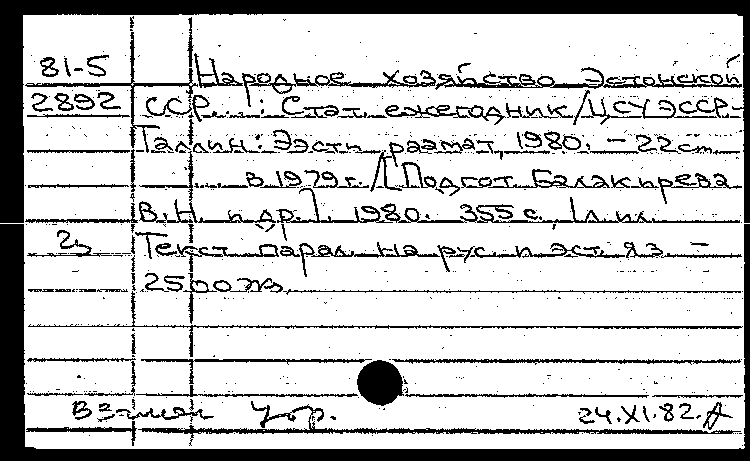 81-5 Народное хозяйство Эстонской
2892 ССР...: Стат. ежегодник/ЦСУ ЭССР-
Таллин: Ээсти раамат, 1980. - 22 см.
... в 1979 г. /[Подгот. Балакирева
В.Н. и др.]. 1980. 355 с., 1 л. ил.
Текст парал. на рус. и эст. яз. -
2500 экз.
Взамен 24.XI.82.